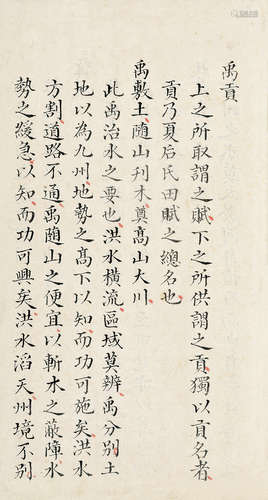 禹貢
上之所取謂之賦下之所供謂之貢獨以貢名者
貢乃夏后氏田賦之總名也
禹敷土随山刋木奠髙山大川
此禹治水之要也洪水橫流區域莫辨禹分别土
地以為九州地勢之髙下以知而功可施矣洪水
方割道路不通禹随山之便宜以斬木之蔽障水
勢之緩急以知而功可興矣洪水滔天州境不别